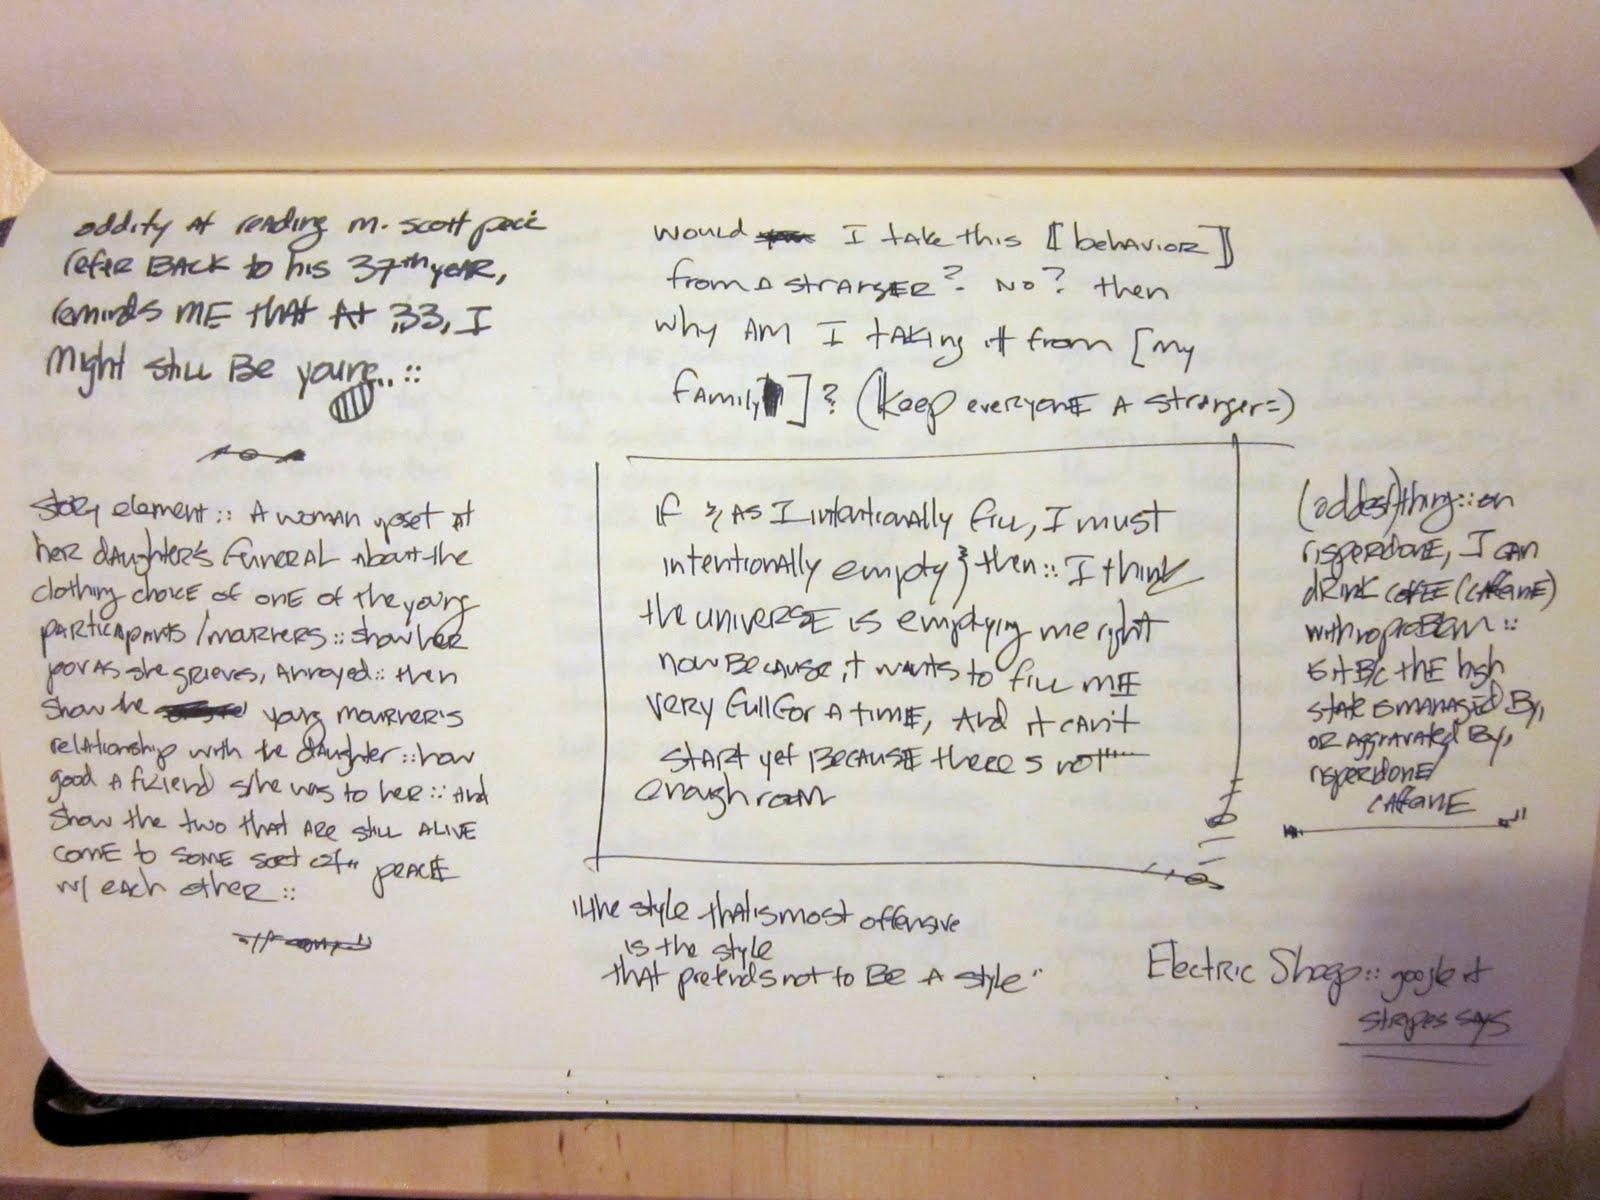 oddity at reading m. scott peck
refer BACK to his 37th year,
reminds ME that At 33, I
Might still Be young..::
story element:: A woman upset at
her daughter's funeral about the
clothing choice of one of the young
participants/mourners:: show her
poor as she grieves, annoyed:: then
show the young mourner's
relationship with the daughter:: how
good a friend s/he was to her:: And
show the two that are still ALIVE
come to some sort of" peace
w/ each other::
would I take this [[behavior]]
from a stranger? No? then
why AM I taking it from [my
family]? (keep everyone A stranger=)
if } As I intentionally fill, I must
intentionally empty} then:: I think
the universe is emptying me right
now Because it wants to fill ME
very full for A time, And it can't
start yet Because there s not"
enough room
(oddest)thing::on
risperdone, I can
drink coffee (caffeine)
with no problem::
is it B/c the high
state is managed By,
or aggravated By,
risperdone
caffeine
"the style that is most offensive
is the style
that pretends not to Be A style"
Electric Sheep:: google it
stripes says